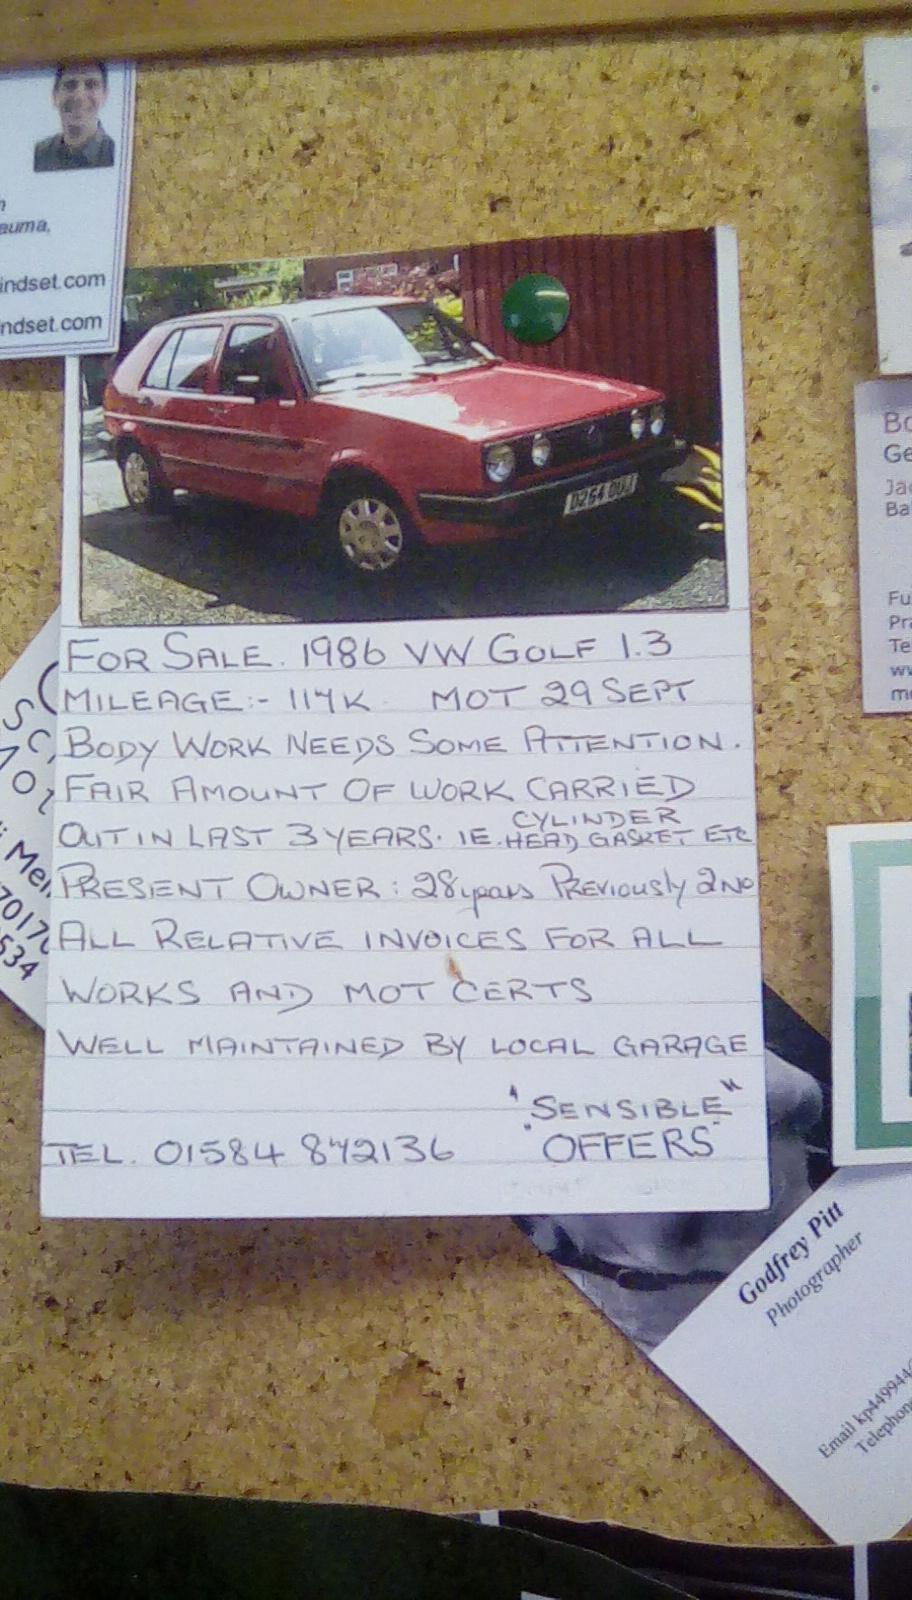 auma,
indset.com
ndset.com
D264 OUJ
FOR SALE. 1986 VW GOLF 1.3
MILEAGE:- 114K. MOT 29 SEPT
BODY WORK NEEDS SOME ATTENTION.
FAIR AMOUNT OF WORK CARRIED
OUT IN LAST 3 YEARS. IE. CYLINDER HEAD GASKET ETC
PRESENT OWNER: 28 years PREVIOUSLY 2 NO
ALL RELATIVE INVOICES FOR ALL
WORKS AND MOT CERTS
WELL MAINTAINED BY LOCAL GARAGE
"SENSIBLE"
"OFFERS"
TEL. 01584 872136
Bo
Ge
Ja
Ba
Fu
Pra
Te
ww
mo
Godfrey Pitt
Photographer
Email kp449944
Telephon